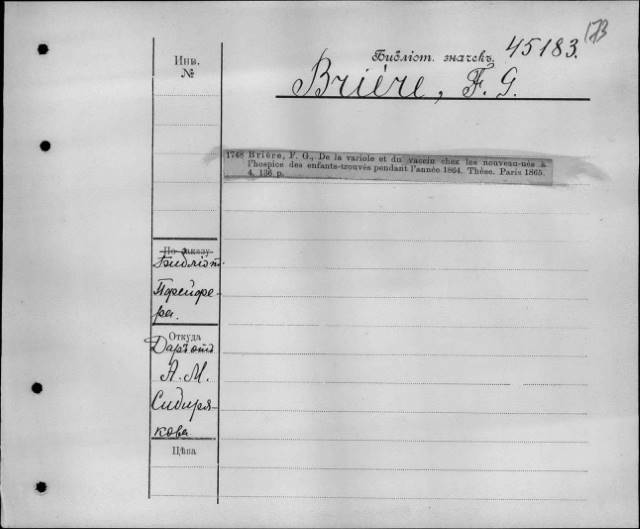 173
Библіот. значекъ 45183.
Инв.
№
Brière, F. G.
1748 Brière, F. G., De la variole et du vaccin chez les nouveau-nés à
l'hospice des enfants-trouvés pendant l'année 1864. Thèse. Paris 1865.
4. 136 p.
По заказу
Библіот.
Пфейфе-
ра.
Откуда
Даръ отъ
А. М.
Сибиря-
кова
Цѣна